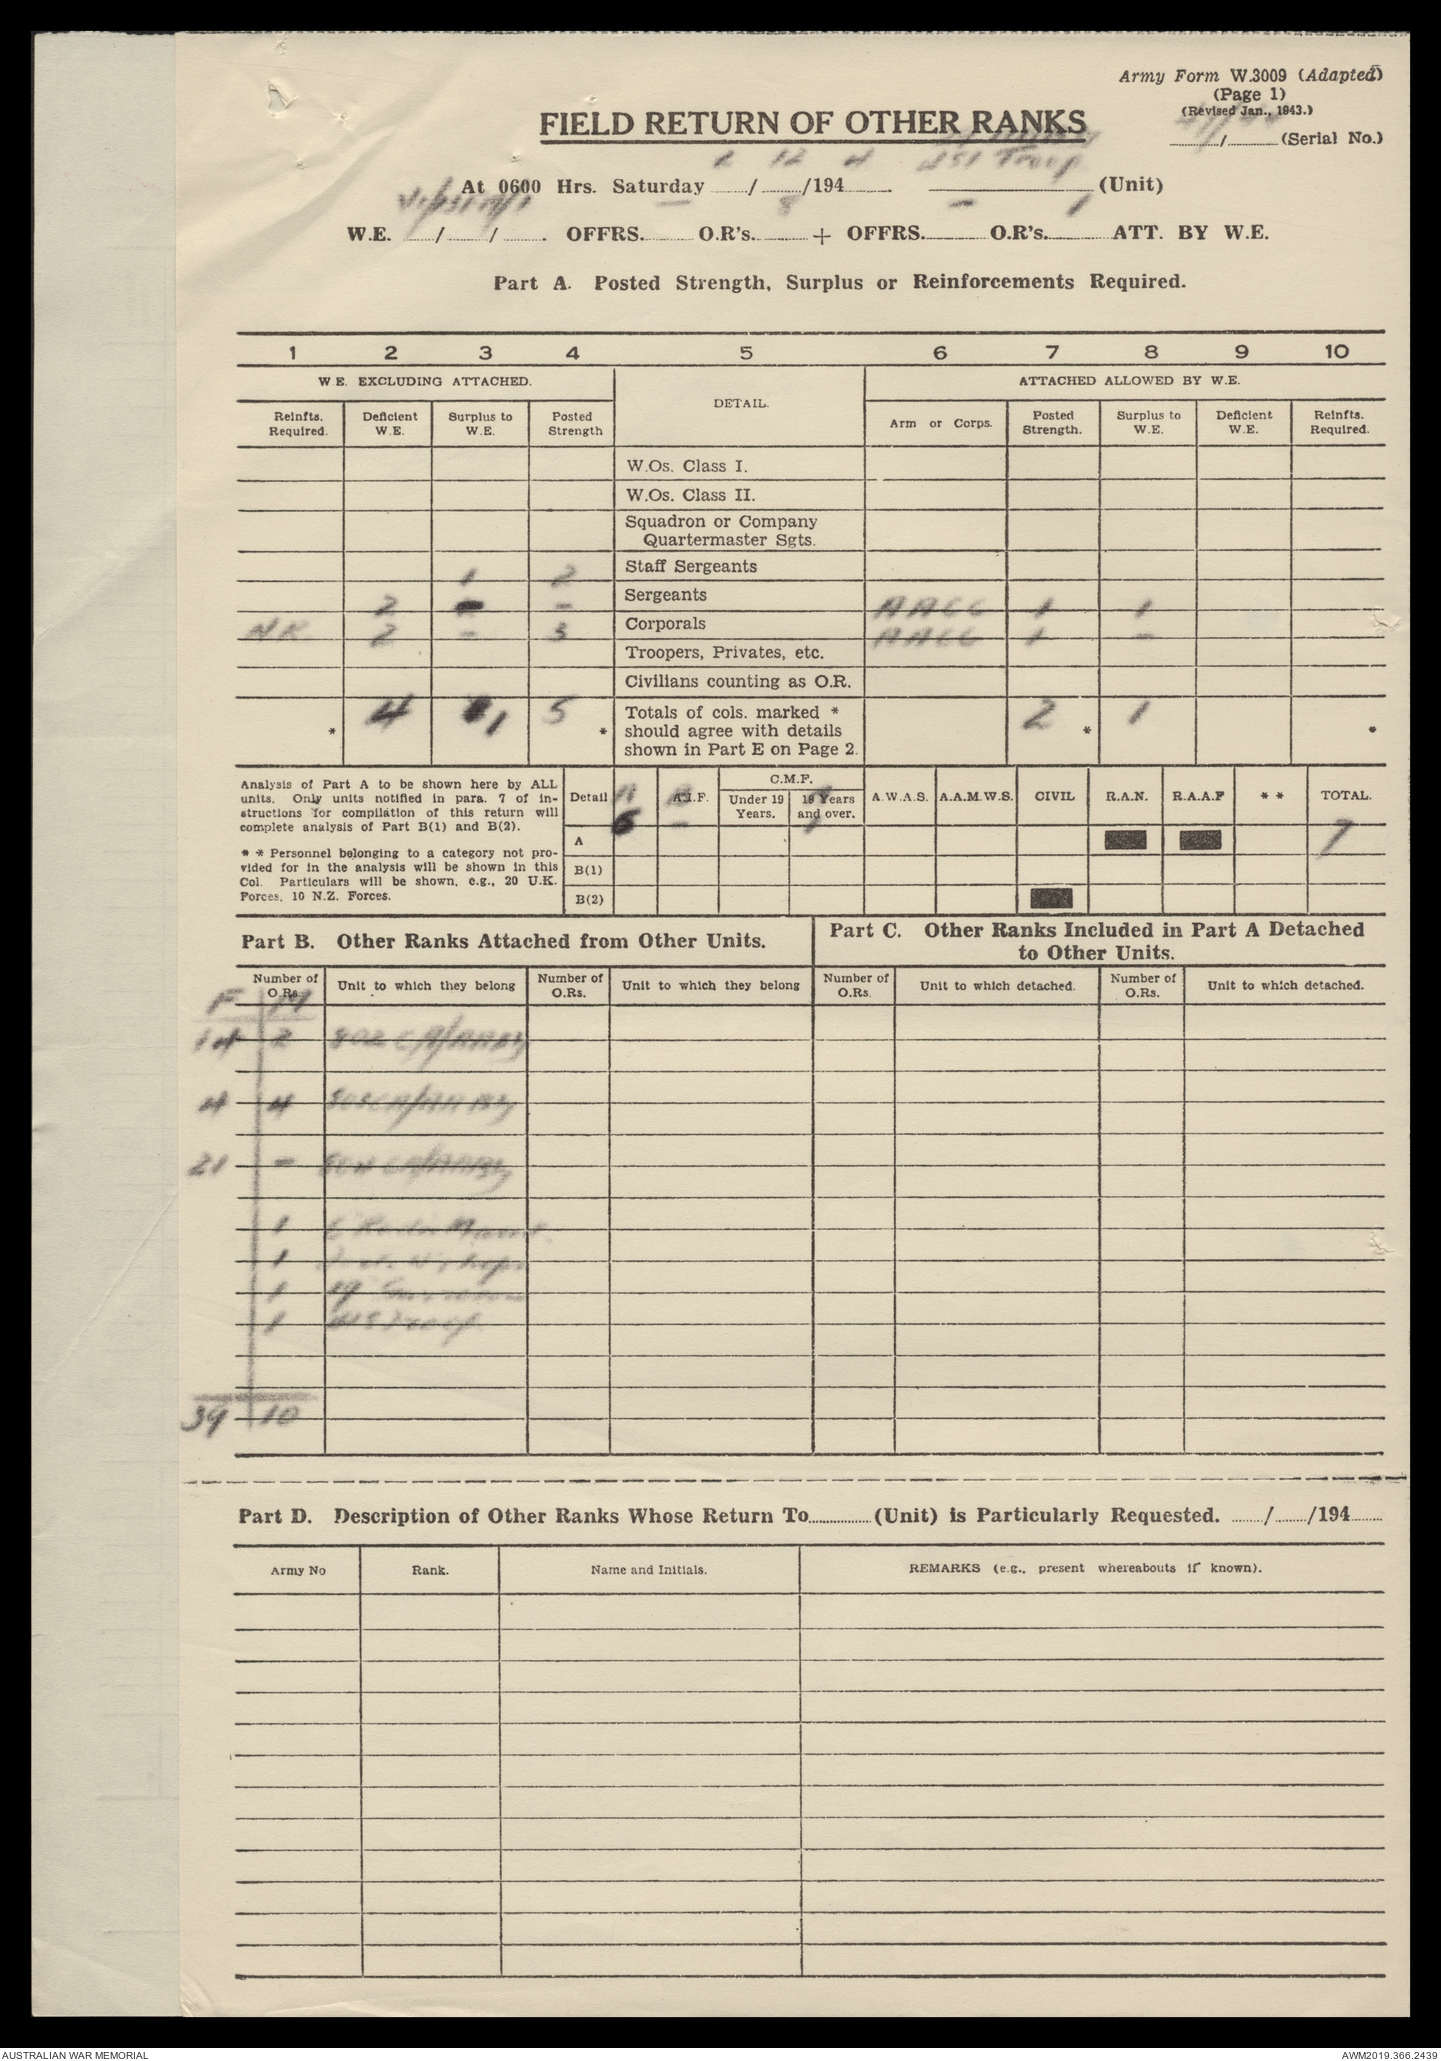 Army Form W.3009 (Adapted)
(Page 1)
(Revised Jan., 1943.)
FIELD RETURN OF OTHER RANKS
....../.......... (Serial No.)
2 12 4 451 Troop
At 0600 Hrs. Saturday ....../......../194........ .................... (Unit)
— 8 — 1
W.E. ....../......../........ . OFFRS........... O.R's.......... + OFFRS........... O.R's........... ATT. BY W.E.
Part A. Posted Strength, Surplus or Reinforcements Required.
1 2 3 4 5 6 7 8 9 10
W.E. EXCLUDING ATTACHED. DETAIL. ATTACHED ALLOWED BY W.E.
Reinfts. Required. Deficient W.E. Surplus to W.E. Posted Strength Arm or Corps. Posted Strength. Surplus to W.E. Deficient W.E. Reinfts. Required.
W.Os. Class I.
W.Os. Class II.
Squadron or Company
Quartermaster Sgts.
1 2 Staff Sergeants
2 – Sergeants AACC 1 1
NR 2 – 3 Corporals AACC 1 –
Troopers, Privates, etc.
Civilians counting as O.R.
* 4 1 5 * Totals of cols. marked * 2 * 1 *
should agree with details
shown in Part E on Page 2.
Analysis of Part A to be shown here by ALL
units. Only units notified in para. 7 of in-
structions for compilation of this return will
complete analysis of Part B(1) and B(2).
* * Personnel belonging to a category not pro-
vided for in the analysis will be shown in this
Col. Particulars will be shown, e.g., 20 U.K.
Forces, 10 N.Z. Forces.
Detail A.I.F. C.M.F. Under 19 Years. 19 Years and over. A.W.A.S. A.A.M.W.S. CIVIL R.A.N. R.A.A.F * * TOTAL.
6 – 1 7
A
B(1)
B(2)
Part B. Other Ranks Attached from Other Units.
Part C. Other Ranks Included in Part A Detached
to Other Units.
Number of O.Rs. Unit to which they belong Number of O.Rs. Unit to which they belong Number of O.Rs. Unit to which detached. Number of O.Rs. Unit to which detached.
F M
14 2 802 CA/AA Bty
4 4
21 –
1
1
1
1
39 10
Part D. Description of Other Ranks Whose Return To............. (Unit) is Particularly Requested. ......./......./194.......
Army No Rank. Name and Initials. REMARKS (e.g., present whereabouts if known).
AUSTRALIAN WAR MEMORIAL
AWM2019.366.2439